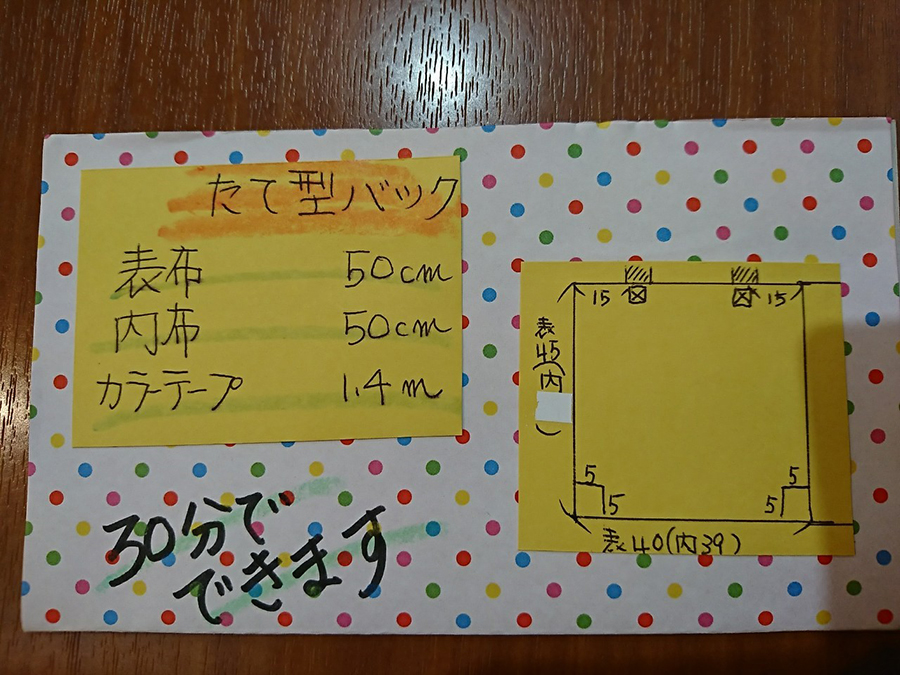 たて型バック
表布 50cm
内布 50cm
カラーテープ 1.4m
30分で
できます
15 15
表45(内 )
5 5
5 5
表40(内39)